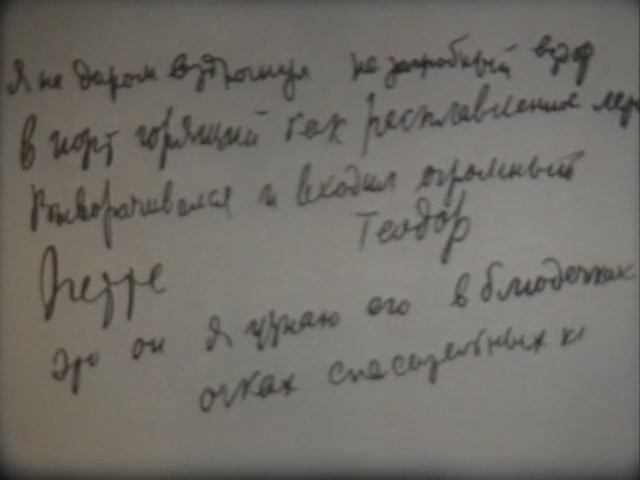 Я не даром вздрогнул не загробный вздор
В порт горящий как расплавленное ле
Разворачивался и входил огромный
Теодор
Нетте
Это он я узнаю его в блюдечках
очках спасательных к